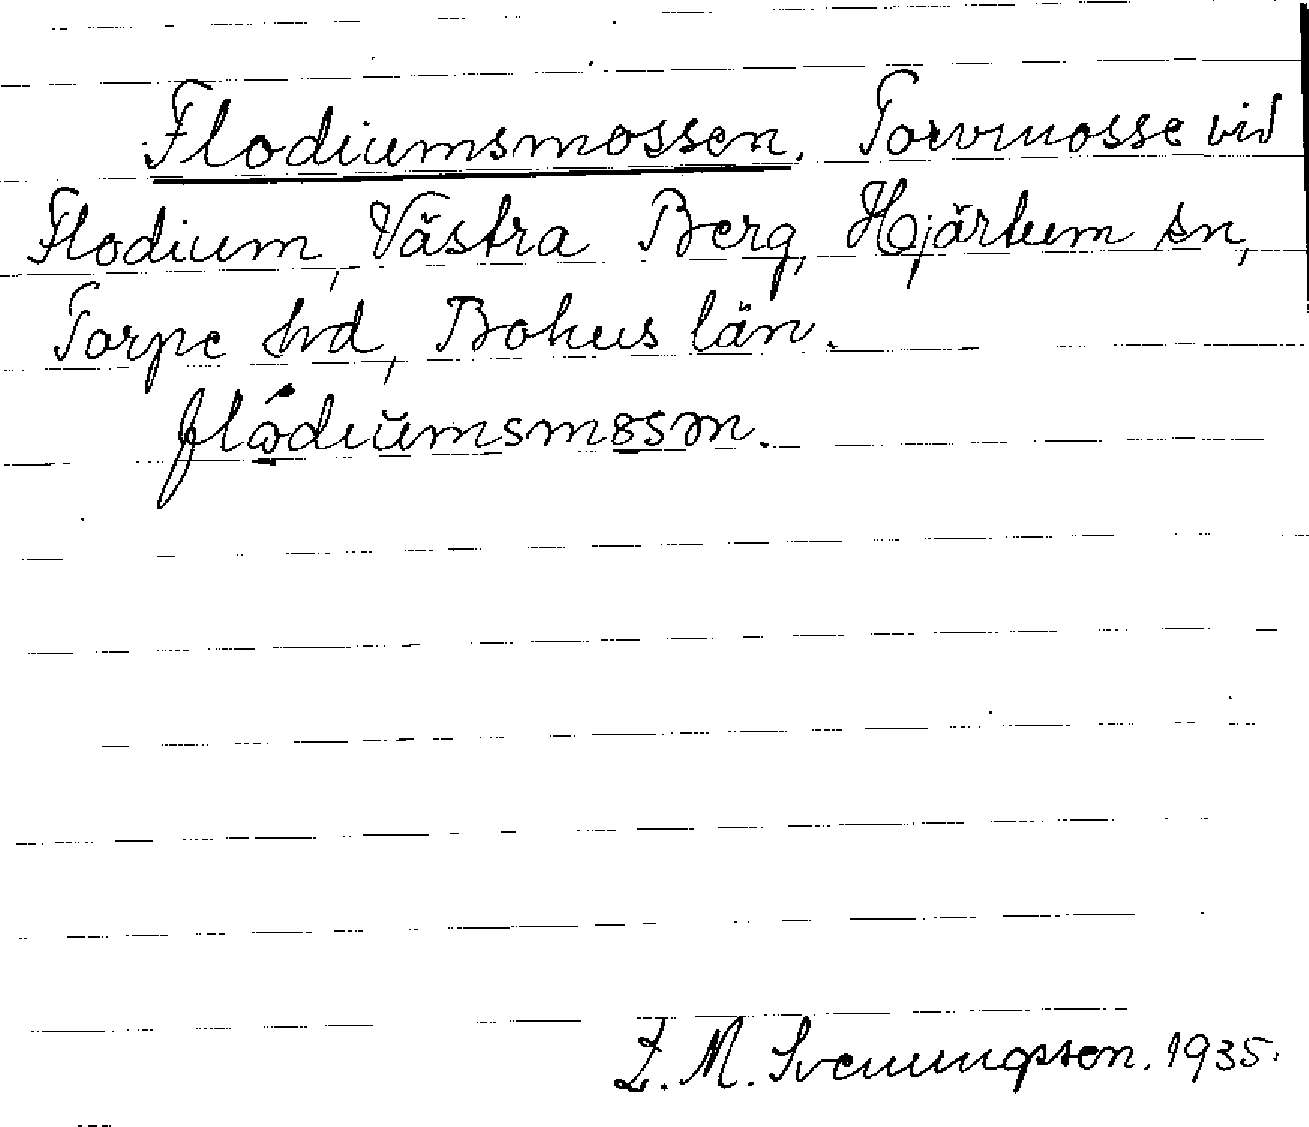 Flodiumsmossen. Torvmosse vid
Flodium, Västra Berg, Hjärtum sn,
Torpe hd, Bohus län.
flådiŭmsmosən.
Z. M. Svenungsson. 1935.